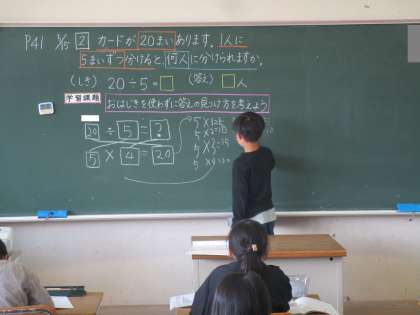 P41 2 カードが20まいあります。1人に
5まいずつ分けると、何人に分けられますか。
(しき) 20÷5=□ (答え) □人
学習課題 おはじきを使わずに答えの見つけ方を考えよう
20 ÷ 5 = ?
5 × 4 = 20
5×1=5
5×2=10
5×3=15
5×4=20